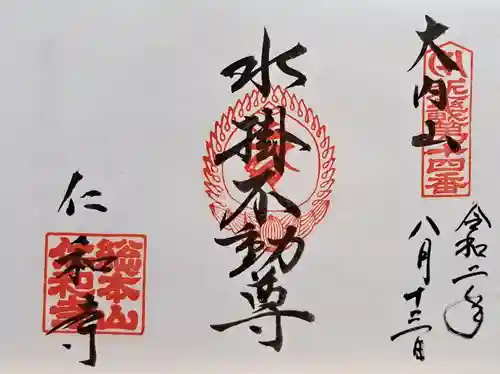 大内山
近畿第十四番
令和二年
八月十三日
水掛不動尊
仁和寺
總本山
仁和寺